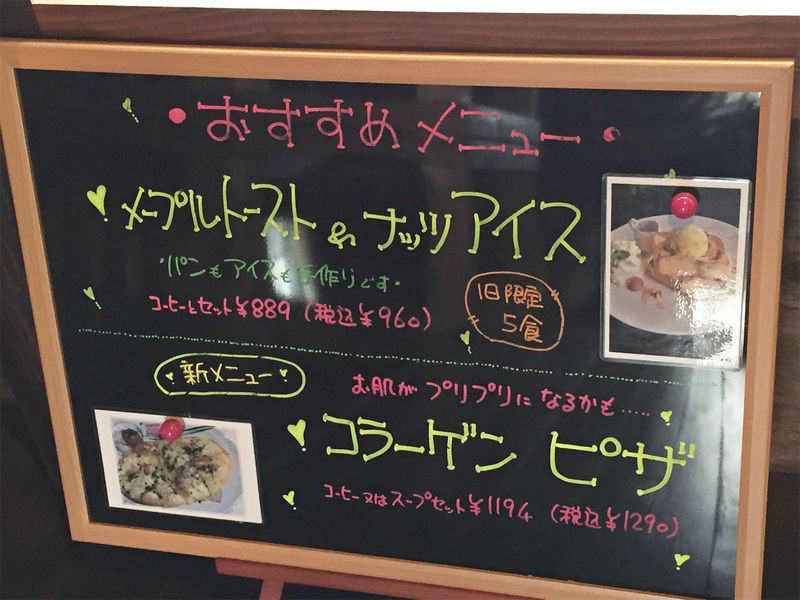 ・おすすめメニュー・
メープルトースト & ナッツアイス
・パンもアイスも手作りです・
コーヒーとセット¥889(税込¥960)
1日限定
5食
・新メニュー・
お肌がプリプリになるかも.....
コラーゲン ピザ
コーヒー又はスープセット¥1194 (税込¥1290)